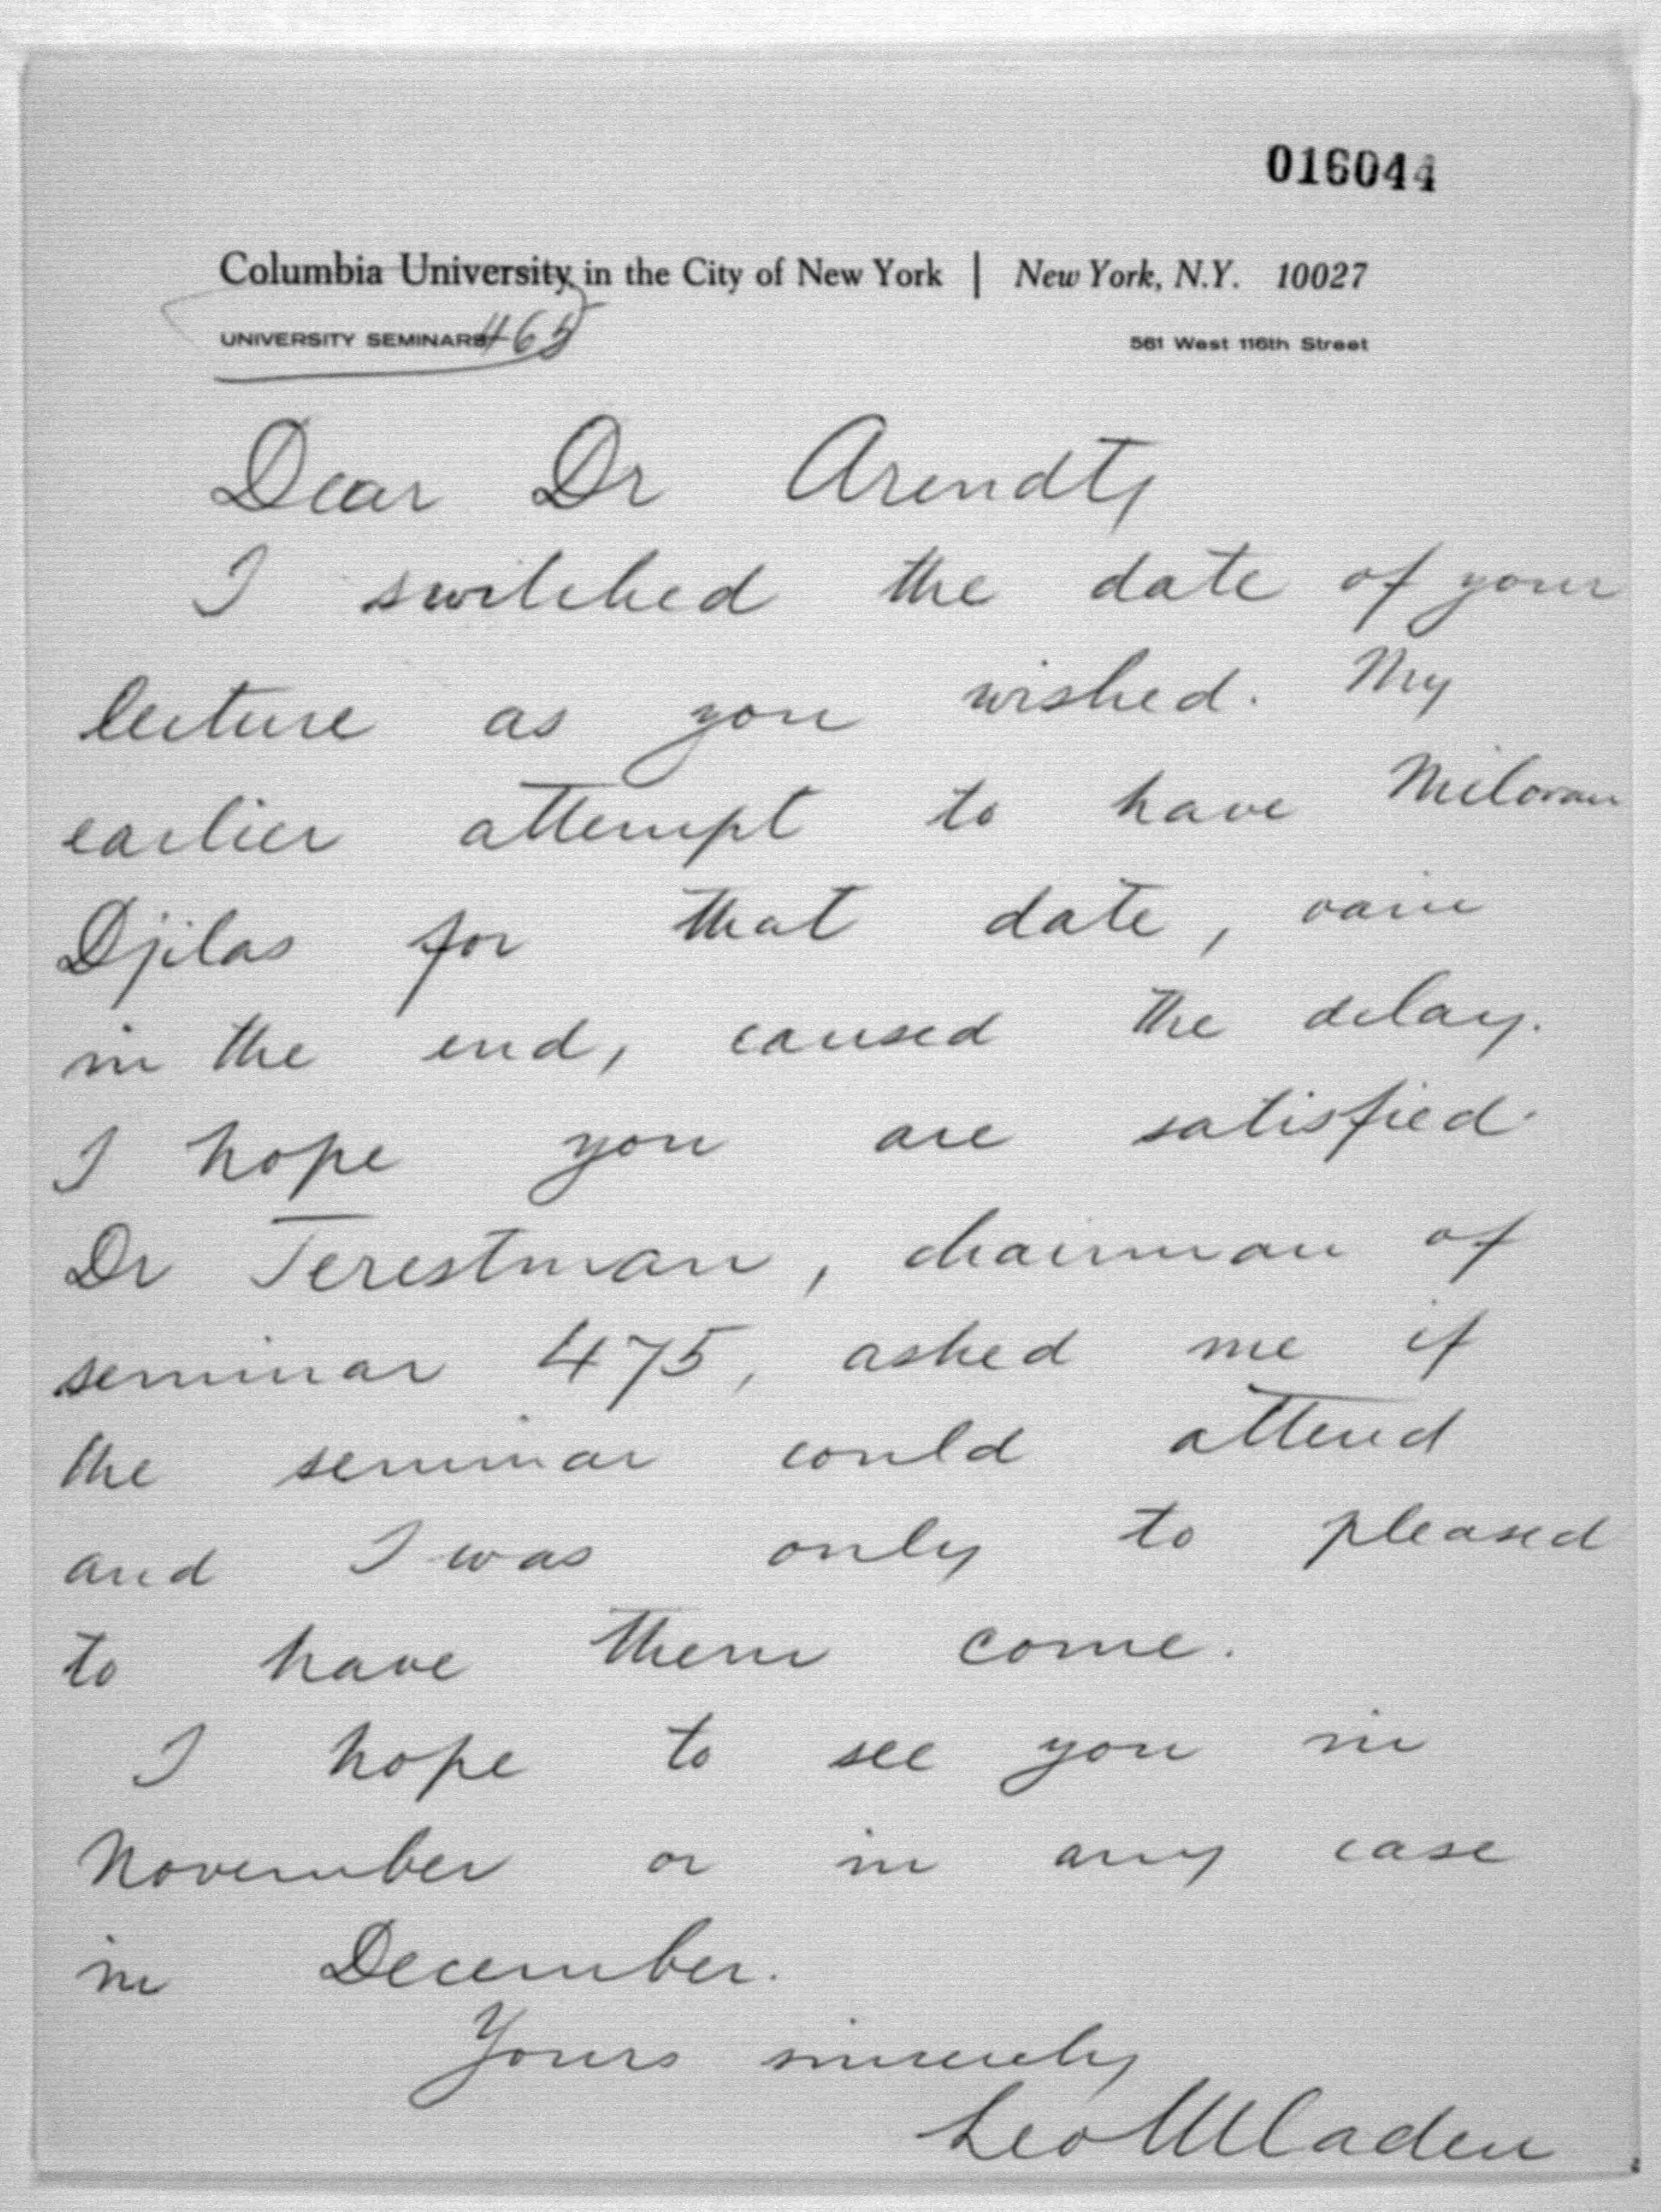 016044
Columbia University in the City of New York | New York, N.Y. 10027
UNIVERSITY SEMINARS 465
561 West 116th Street
Dear Dr Arendt,
I switched the date of your
lecture as you wished. My
earlier attempt to have Milovan
Djilas for that date, vain
in the end, caused the delay.
I hope you are satisfied.
Dr Terestman, chairman of
seminar 475, asked me if
the seminar could attend
and I was only to pleased
to have them come.
I hope to see you in
November or in any case
in December.
Yours sincerely
Leo Mladen